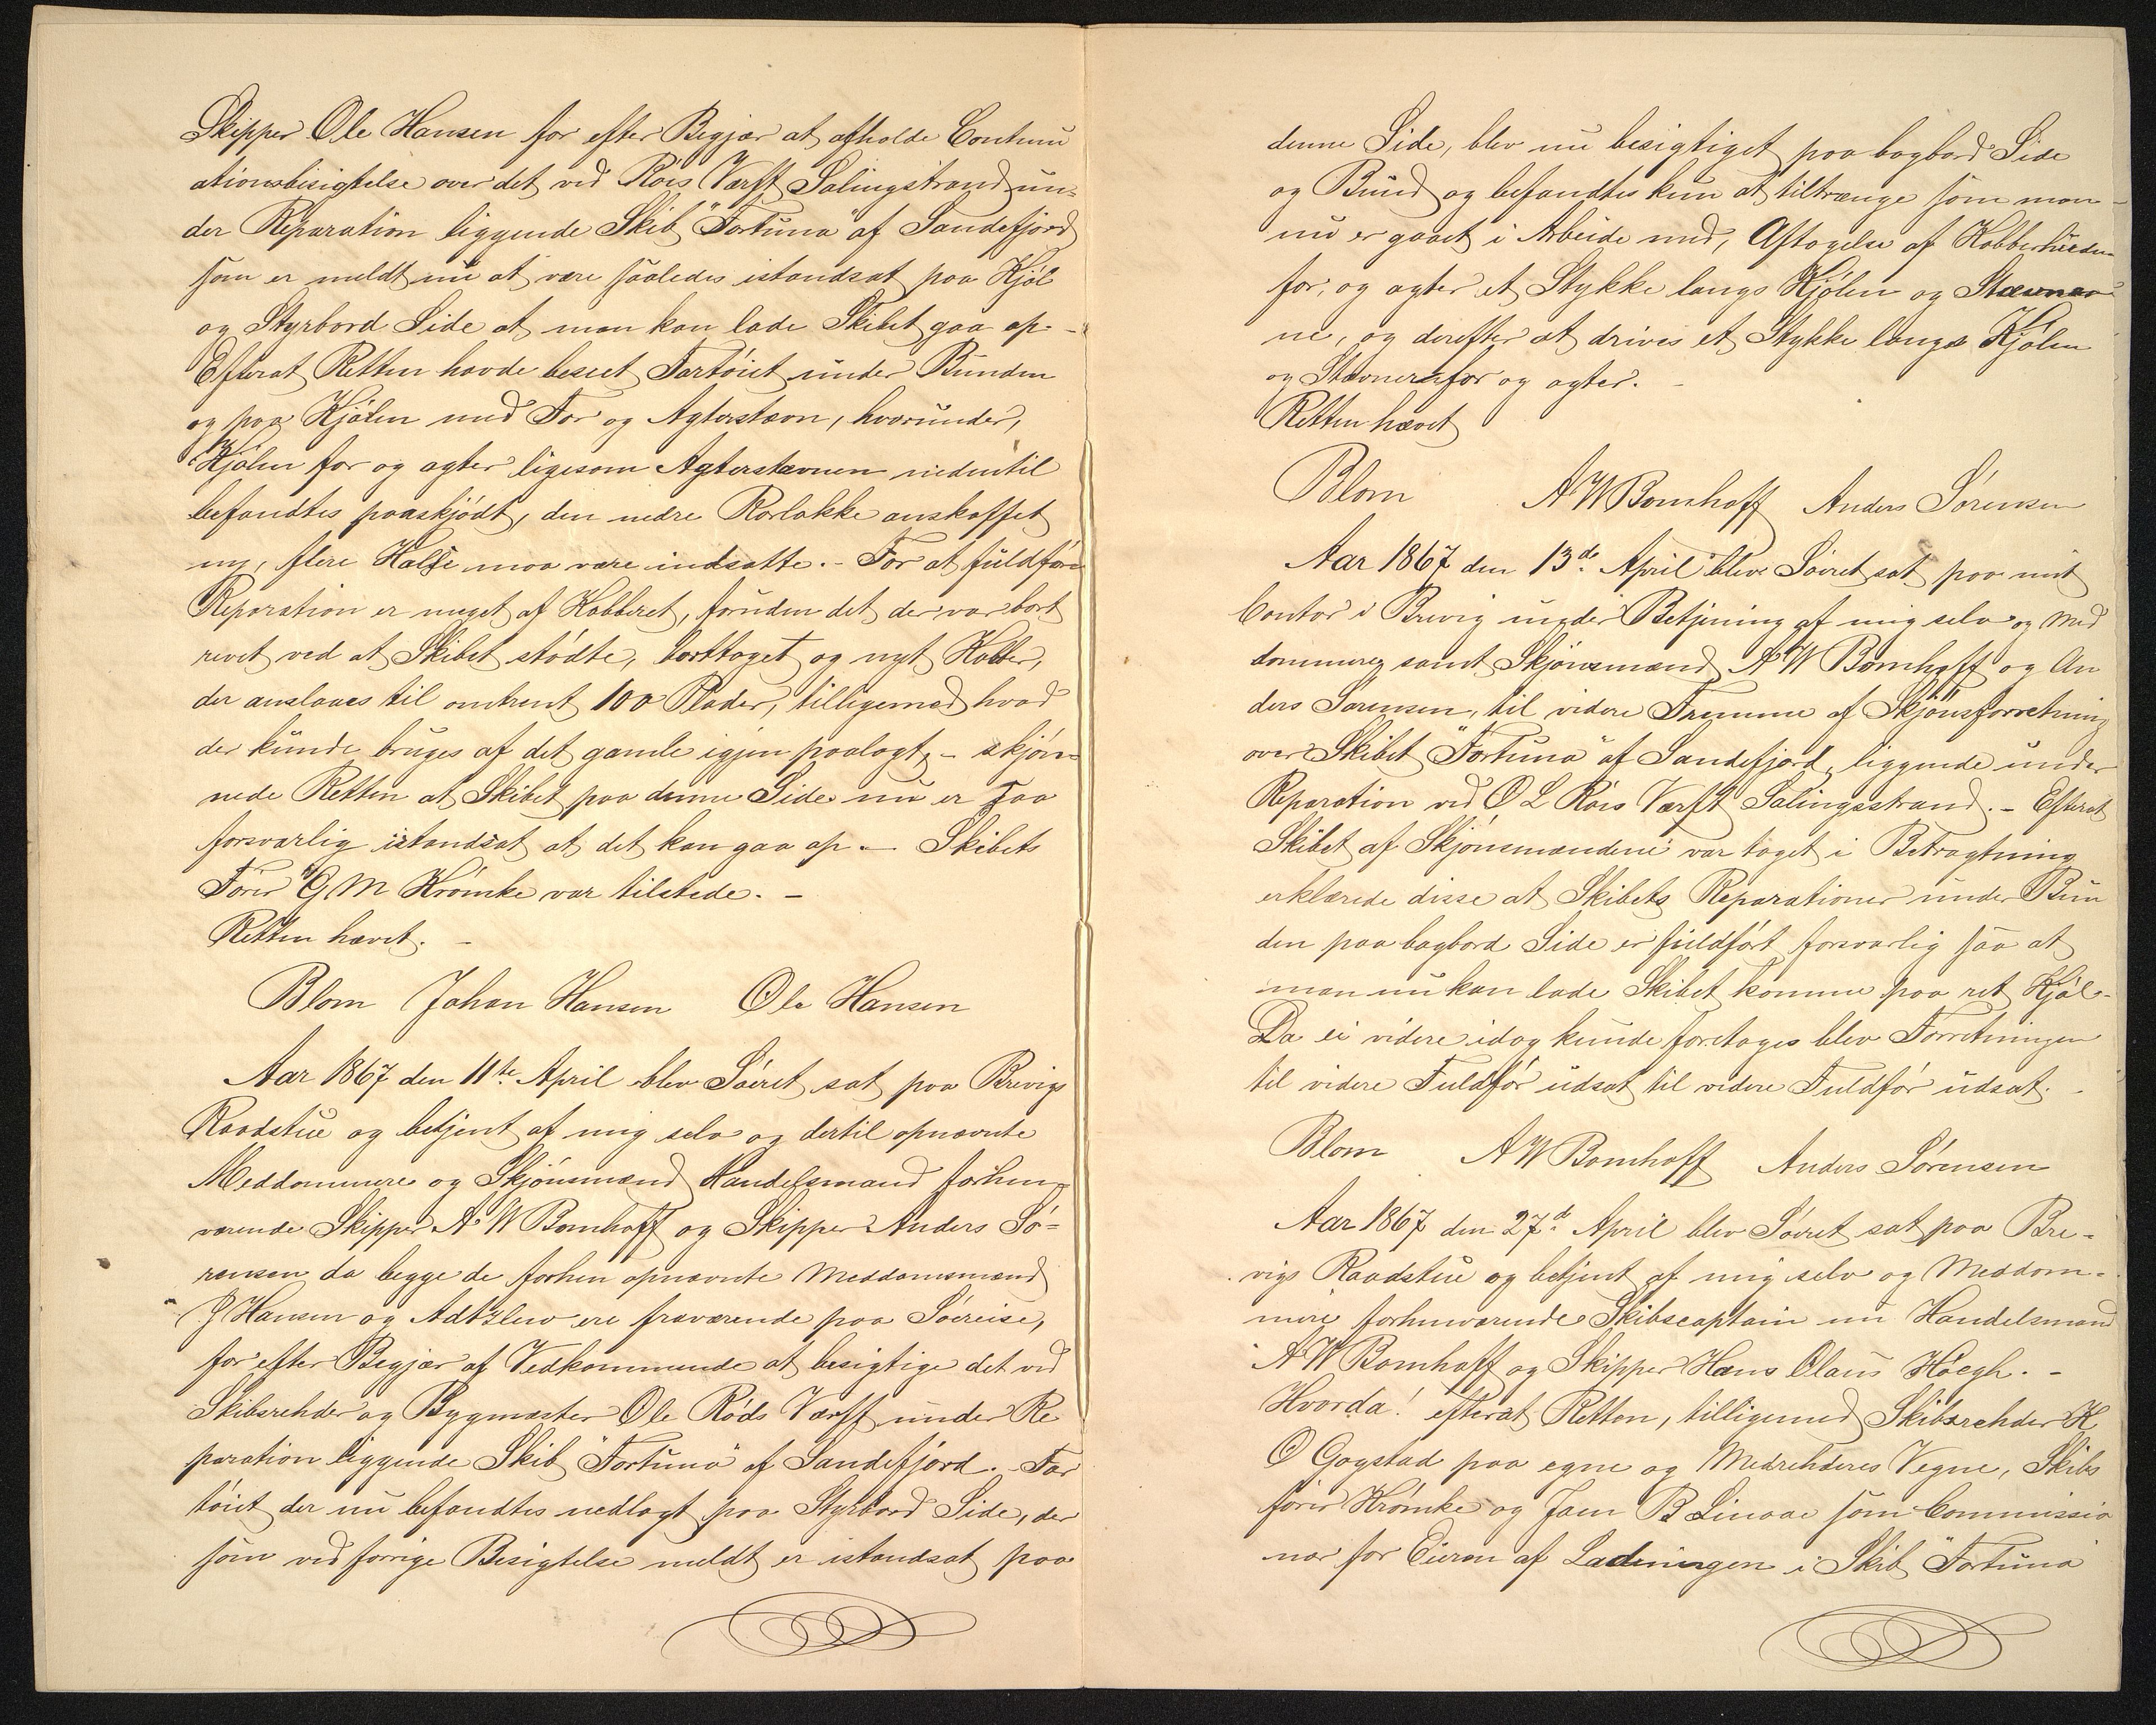 Skipper Ole Hansen for efter Begjær at afholde Contunu
ationsbisigtelse over det ved Röis Værft Salingstrand un-
der Reparation liggende Skib "Fortuna" af Sandefjord
som er meldt nu at være saaledes istandsat paa Kjöl
og Styrbord Side at man kan lade Skibet gaa op. -
Efterat Retten havde beseet Fartöiet under Bunden
og paa Kjölen med For og Agterstævn, hvorunder,
Kjölen for og agter ligesom Agterstævnen nedentil
befandtes paaskjödt, den nedre Rorlökke anskaffet
ny, flere Halse maa være indsatte. - For at fuldföre
Reparation er meget af Kobberet, foruden det der var bort
revet ved at Skibet stödte, borttaget og nyt Kobber,
der anslaaes til omtrent 100 Plader, tilligemed hvad
der kunde bruges af det gamle igjen paalagt, - skjön-
nede Retten at Skibet paa denne Side nu er saa
forsvarlig istandsat at det kan gaa op. - Skibets
Förer G M Krömke var tilstede. -
Retten hævet. -
Blom Johan Hansen Ole Hansen
Aar 1867 den 11te April blev Söret sat paa Brevigs
Raadstue og betjent af mig selv og dertil opnævnte
Meddommere og Skjönsmænd Handelsmand forhen
værende Skipper A W Bomhoff og Skipper Anders Sö-
rensen da begge de forhen opnævnte Meddomsmænd
J Hansen og Adtzlew ere fraværende paa Söreise,
for efter Begjær af Vedkommende at besigtige det ved
Skibsrehder og Bygmester Ole Röds Værft under Re
paration liggende Skib "Fortuna" af Sandefjörd. Far
töiet der nu befandtes nedlagt paa Styrbord Side, der
som ved forrige Besigtelse meldt er istandsat paa
denne Side, blev nu besigtiget paa bagbord Side
og Bund og befandtes kun at tiltrænge som man -
nu er gaaet i Arbeide med, Aftagelse af Kobberhuden
for, og agter et Stykke langs Kjölen og Stævner
ne, og derefter at drives et Stykke langs Kjölen
og Stævnerne for og agter. -
Retten hævet
Blom A W Bomhoff Anders Sörensen
Aar 1867 den 13de April blev Söret sat paa mit
Contor i Brevig under Betjening af mig selv og Med
dommere samt Skjönsmænd A W Bomhoff og An
ders Sörensen, til videre Fremme af Skjönsforretning
over Skibet "Fortuna" af Sandefjord, liggende under
Reparation ved O L Röis Værft Salingsstrand. - Efterat
Skibet af Skjönsmændene var taget i Betragtning
erklærede disse at Skibets Reparationer under Bun
den paa bagbord Side er fuldfört forsvarlig saa at
man nu kan lade Skibet komme paa ret Kjöl -
Da ei videre idag kunde foretages blev Forretningen
til videre Fuldför udsat til videre Fuldför udsat. -
Blom A W Bomhoff Anders Sörensen
Aar 1867 den 27de April blev Söret sat paa Bre-
vigs Raadstue og betjent af mig selv og Meddom-
mere forhenværende Skibscaptain nu Handelsmand
A W Bomhoff og Skipper Hans Claus Höegh. -
Hvorda! efterat Retten, tilligemed Skibsrehder H
O Gogstad paa egne og Medrehderes Vegne, Skibs
förer Krömke og Jam B Linaae som Commissio
nær for Eieren af Ladningen i Skib "Fortuna"